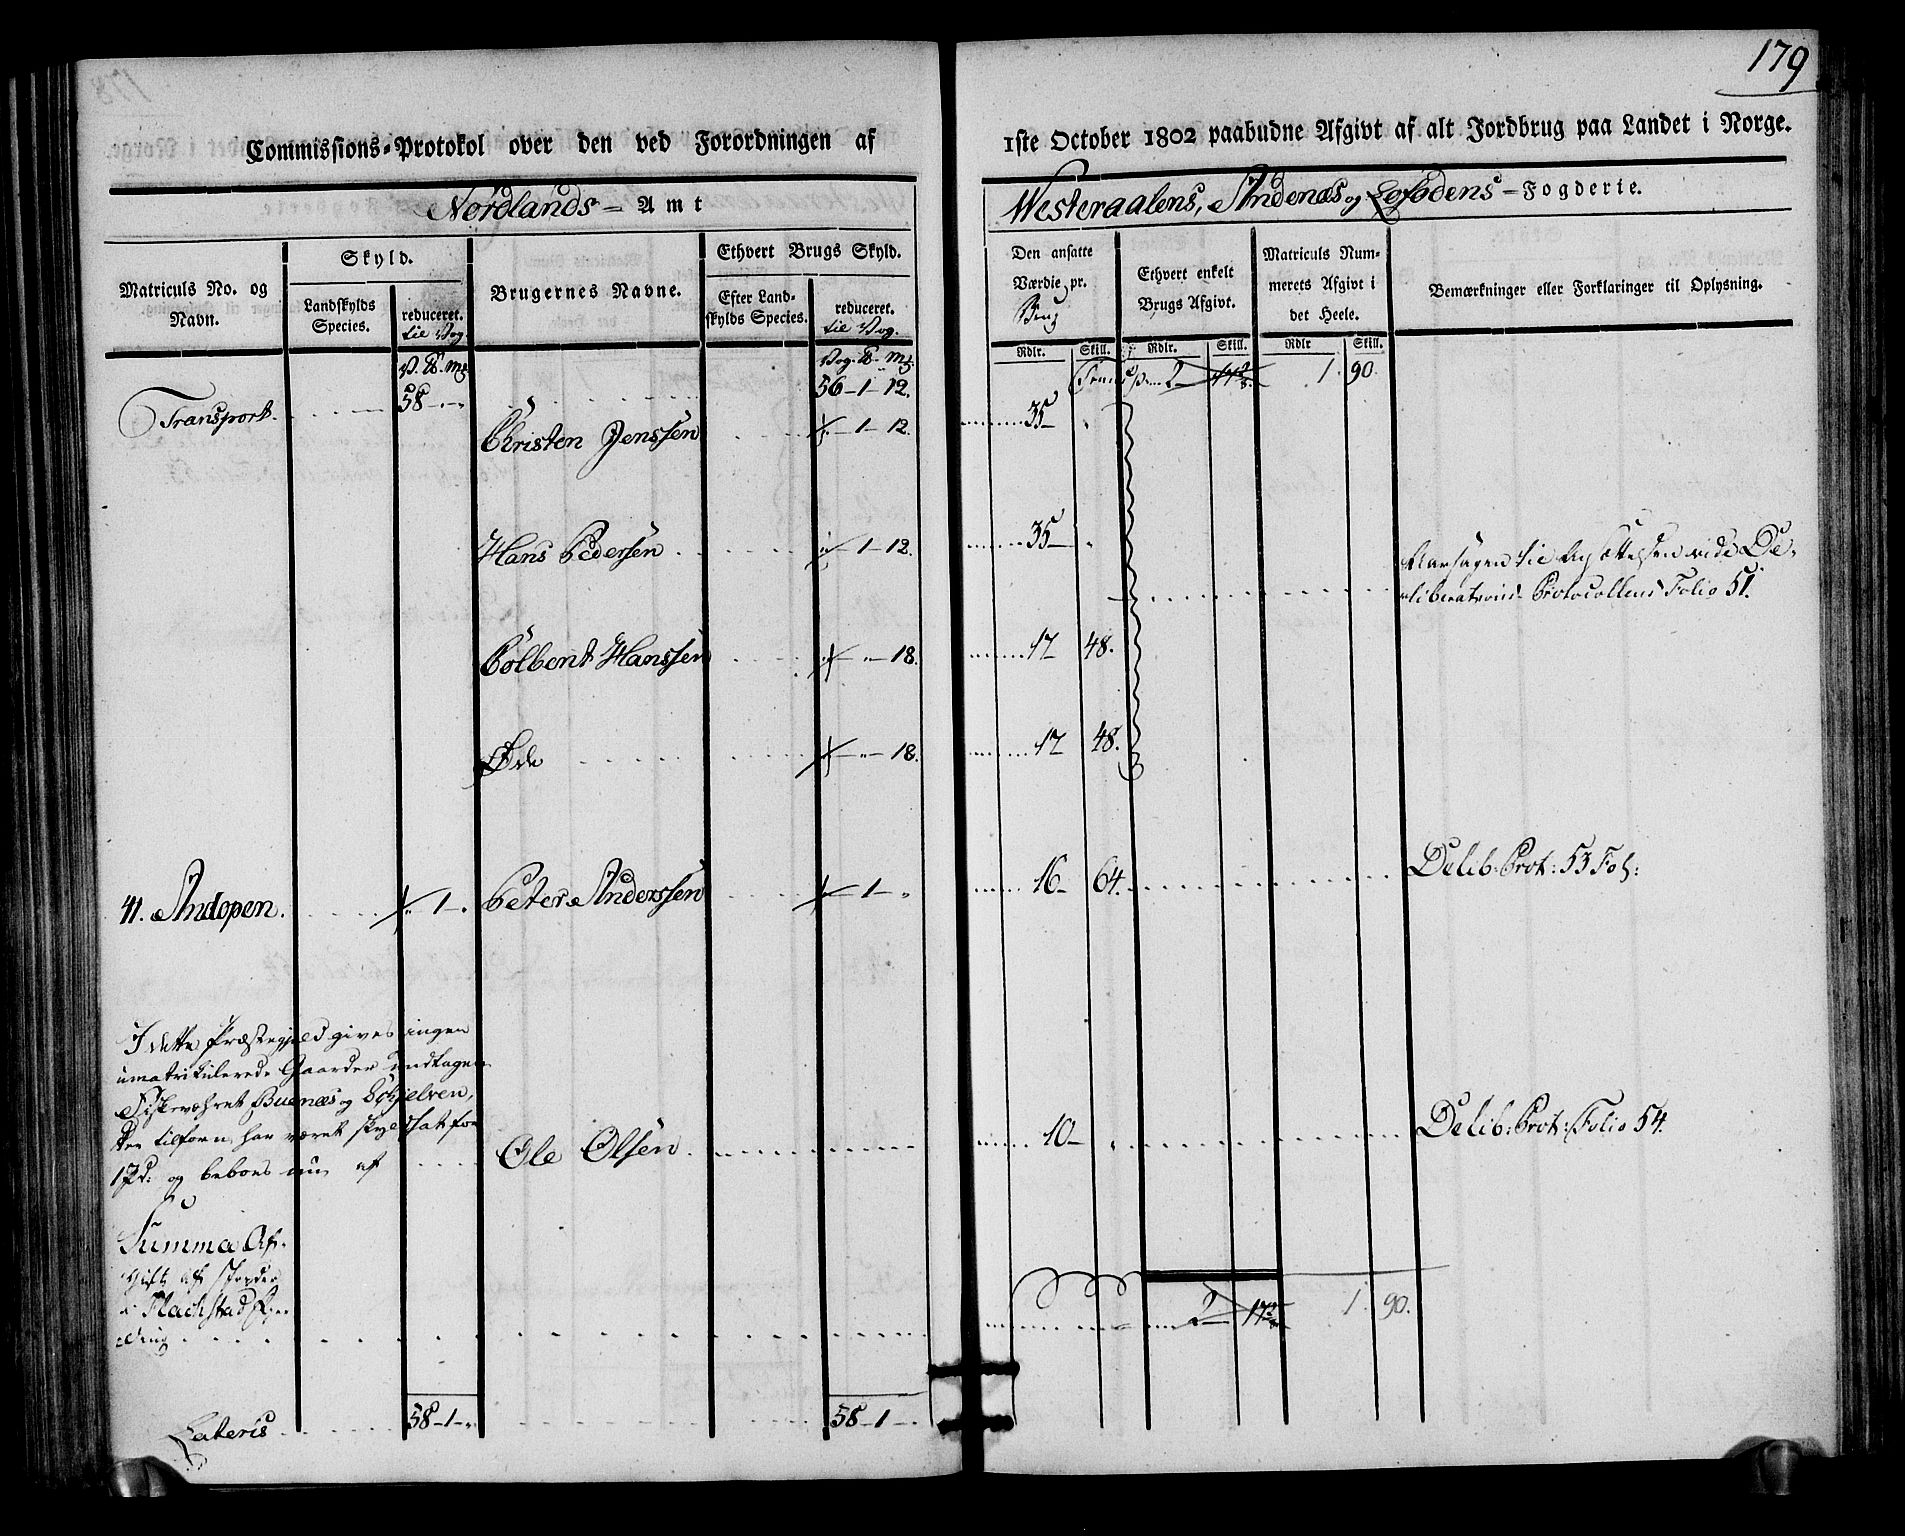 179
Commissions-Protokol over den ved Forordningen af
1ste October 1802 paabudne Afgivt af alt Jordbrug paa Landet i Norge.
Nordlands-Amt
Westeraalens, Andenæs og Lofodens-Fogderie.
Matriculs No. og Navn.
Skyld.
Landskylds Species.
reduceret. til Vog.
Brugernes Navne.
Ethvert Brugs Skyld.
Efter Landskylds Species.
reduceret. til Vog.
Den ansatte Værdie pr. Brug
Ethvert enkelt Brugs Afgivt.
Matriculs Nummerets Afgivt i det Heele.
Bemærkninger eller Forklaringer til Oplysning.
Rdlr. Skill. Rdlr. Skill. Rdlr Skill.
Transport. 58 - " - " 56 - 1 - 12. 2 1. 90.
Christen Jenssen - 1 - 12. 35 - "
Hans Pedersen - 1 - 12. 35 - "
Aarsagen til vide De-
liberations Protocollens Folio 51.
Colbent Hanssen - " - 18. 17 - 48.
Øde - " - 18. 17 48.
41. Andopen. - 1 - " Peter Anderssen - 1 - " 16 - 64. Delib: Prot: 53 Fol:
I dette Præstegjeld gives ingen
umatrikulerede Gaarder undtagen
Fiskeværet og
der tilforn har været skyldsat for
1 Pd: og beboes nu af Ole Olsen. 10 - " Delib: Prot: Folio 54.
Summa Af-
gift af
i Flachstad
ding 2 1. 90.
Lateris 58 - 1 - " 58 - 1 - "